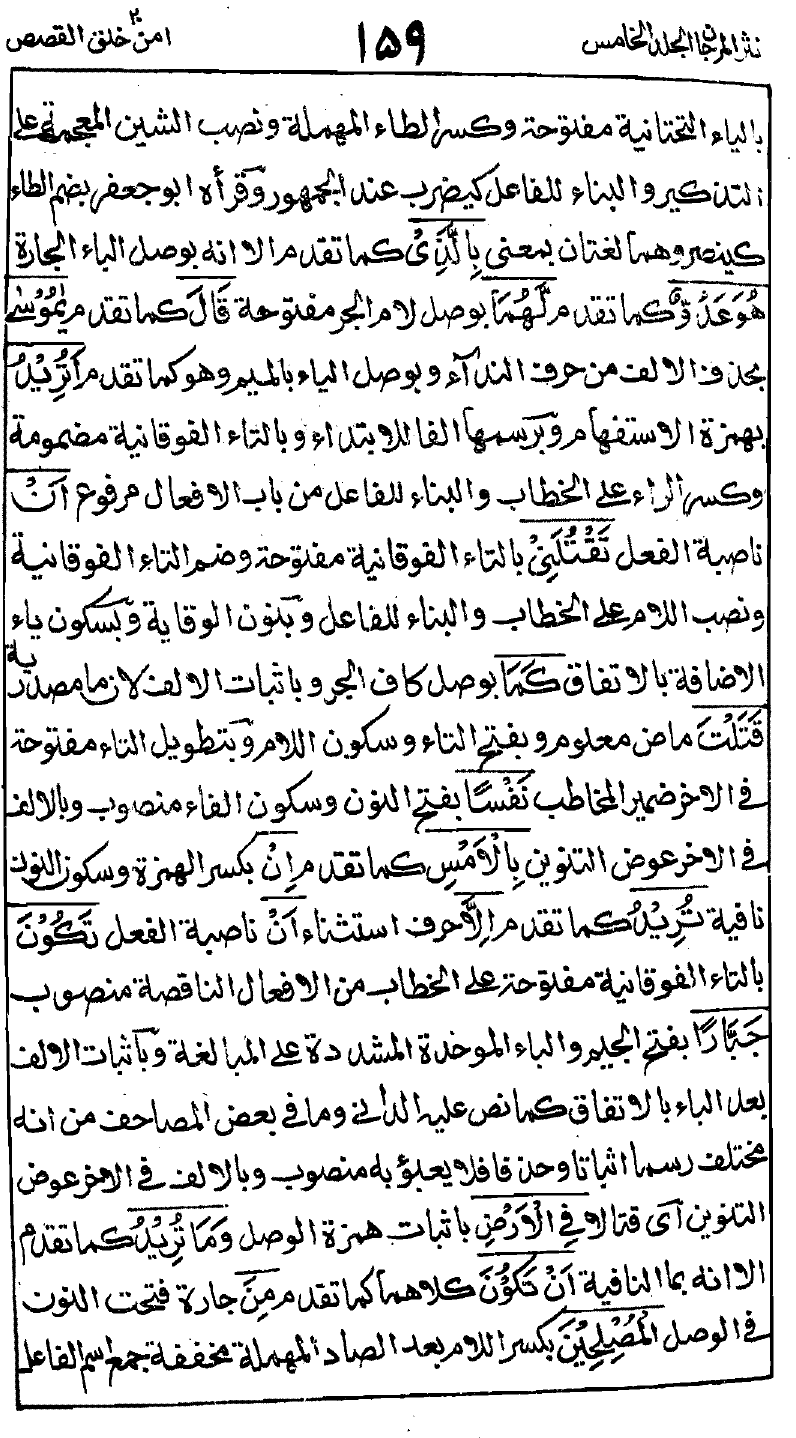 نثر المرجان الجلد الخامس ١٥٩ امن خلق ٢٠ القصص
بالياء التحتانية مفتوحة وكسر الطاء المهملة ونصب الشين المعجمة على
التذكير والبناء للفاعل كيضرب عند الجمهور وقرأه ابو جعفر بضم الطاء
كينصر وهما لغتان بمعنى بِالَّذِىْ كما تقدم الا انه بوصل الباء الجارة
هُوَ عَدُوٌّ كما تقدم لَّهُمَا بوصل لام الجر مفتوحة قَالَ كما تقدم يٰمُوْسٰى
بحذف الالف من حرف الندآء وبوصل الياء بالميم وهو كما تقدم اَتُرِيْدُ
بهمزة الاستفهام وبرسمها الفا للابتداء وبالتاء الفوقانية مضمومة
وكسر الراء على الخطاب والبناء للفاعل من باب الافعال مرفوع اَنْ
ناصبة الفعل تَقْتُلَنِىْ بالتاء الفوقانية مفتوحة وضم التاء الفوقانية
ونصب اللام على الخطاب والبناء للفاعل وبنون الوقاية وبسكون ياء
الاضافة بالاتفاق كَمَا بوصل كاف الجر وباثبات الالف لان ما مصدرية
قَتَلْتَ ماض معلوم وبفتح التاء وسكون اللام وبتطويل التاء مفتوحة
فى الاخر ضمير المخاطب نَفْسًا بفتح النون وسكون الفاء منصوب وبالالف
فى الاخر عوض التنوين بِالْاَمْسِ كما تقدم اِنْ بكسر الهمزة وسكون النون
نافية تُرِيْدُ كما تقدم اِلَّا حرف استثناء اَنْ ناصبة الفعل تَكُوْنَ
بالتاء الفوقانية مفتوحة على الخطاب من الافعال الناقصة منصوب
جَبَّارًا بفتح الجيم والباء الموحدة المشددة على المبالغة وباثبات الالف
بعد الباء بالاتفاق كما نص عليه الدانى وما فى بعض المصاحف من انه
مختلف رسما اثباتا وحذفا فلا يعبؤ به منصوب وبالالف فى الاخر عوض
التنوين اى قتالا فِى الْاَرْضِ باثبات همزة الوصل وَمَا تُرِيْدُ كما تقدم
الا انه بما النافية اَنْ تَكُوْنَ كلاهما كما تقدم مِنَ جارة فتحت النون
فى الوصل الْمُصْلِحِيْنَ بكسر اللام بعد الصاد المهملة مخففة جمع اسم الفاعل